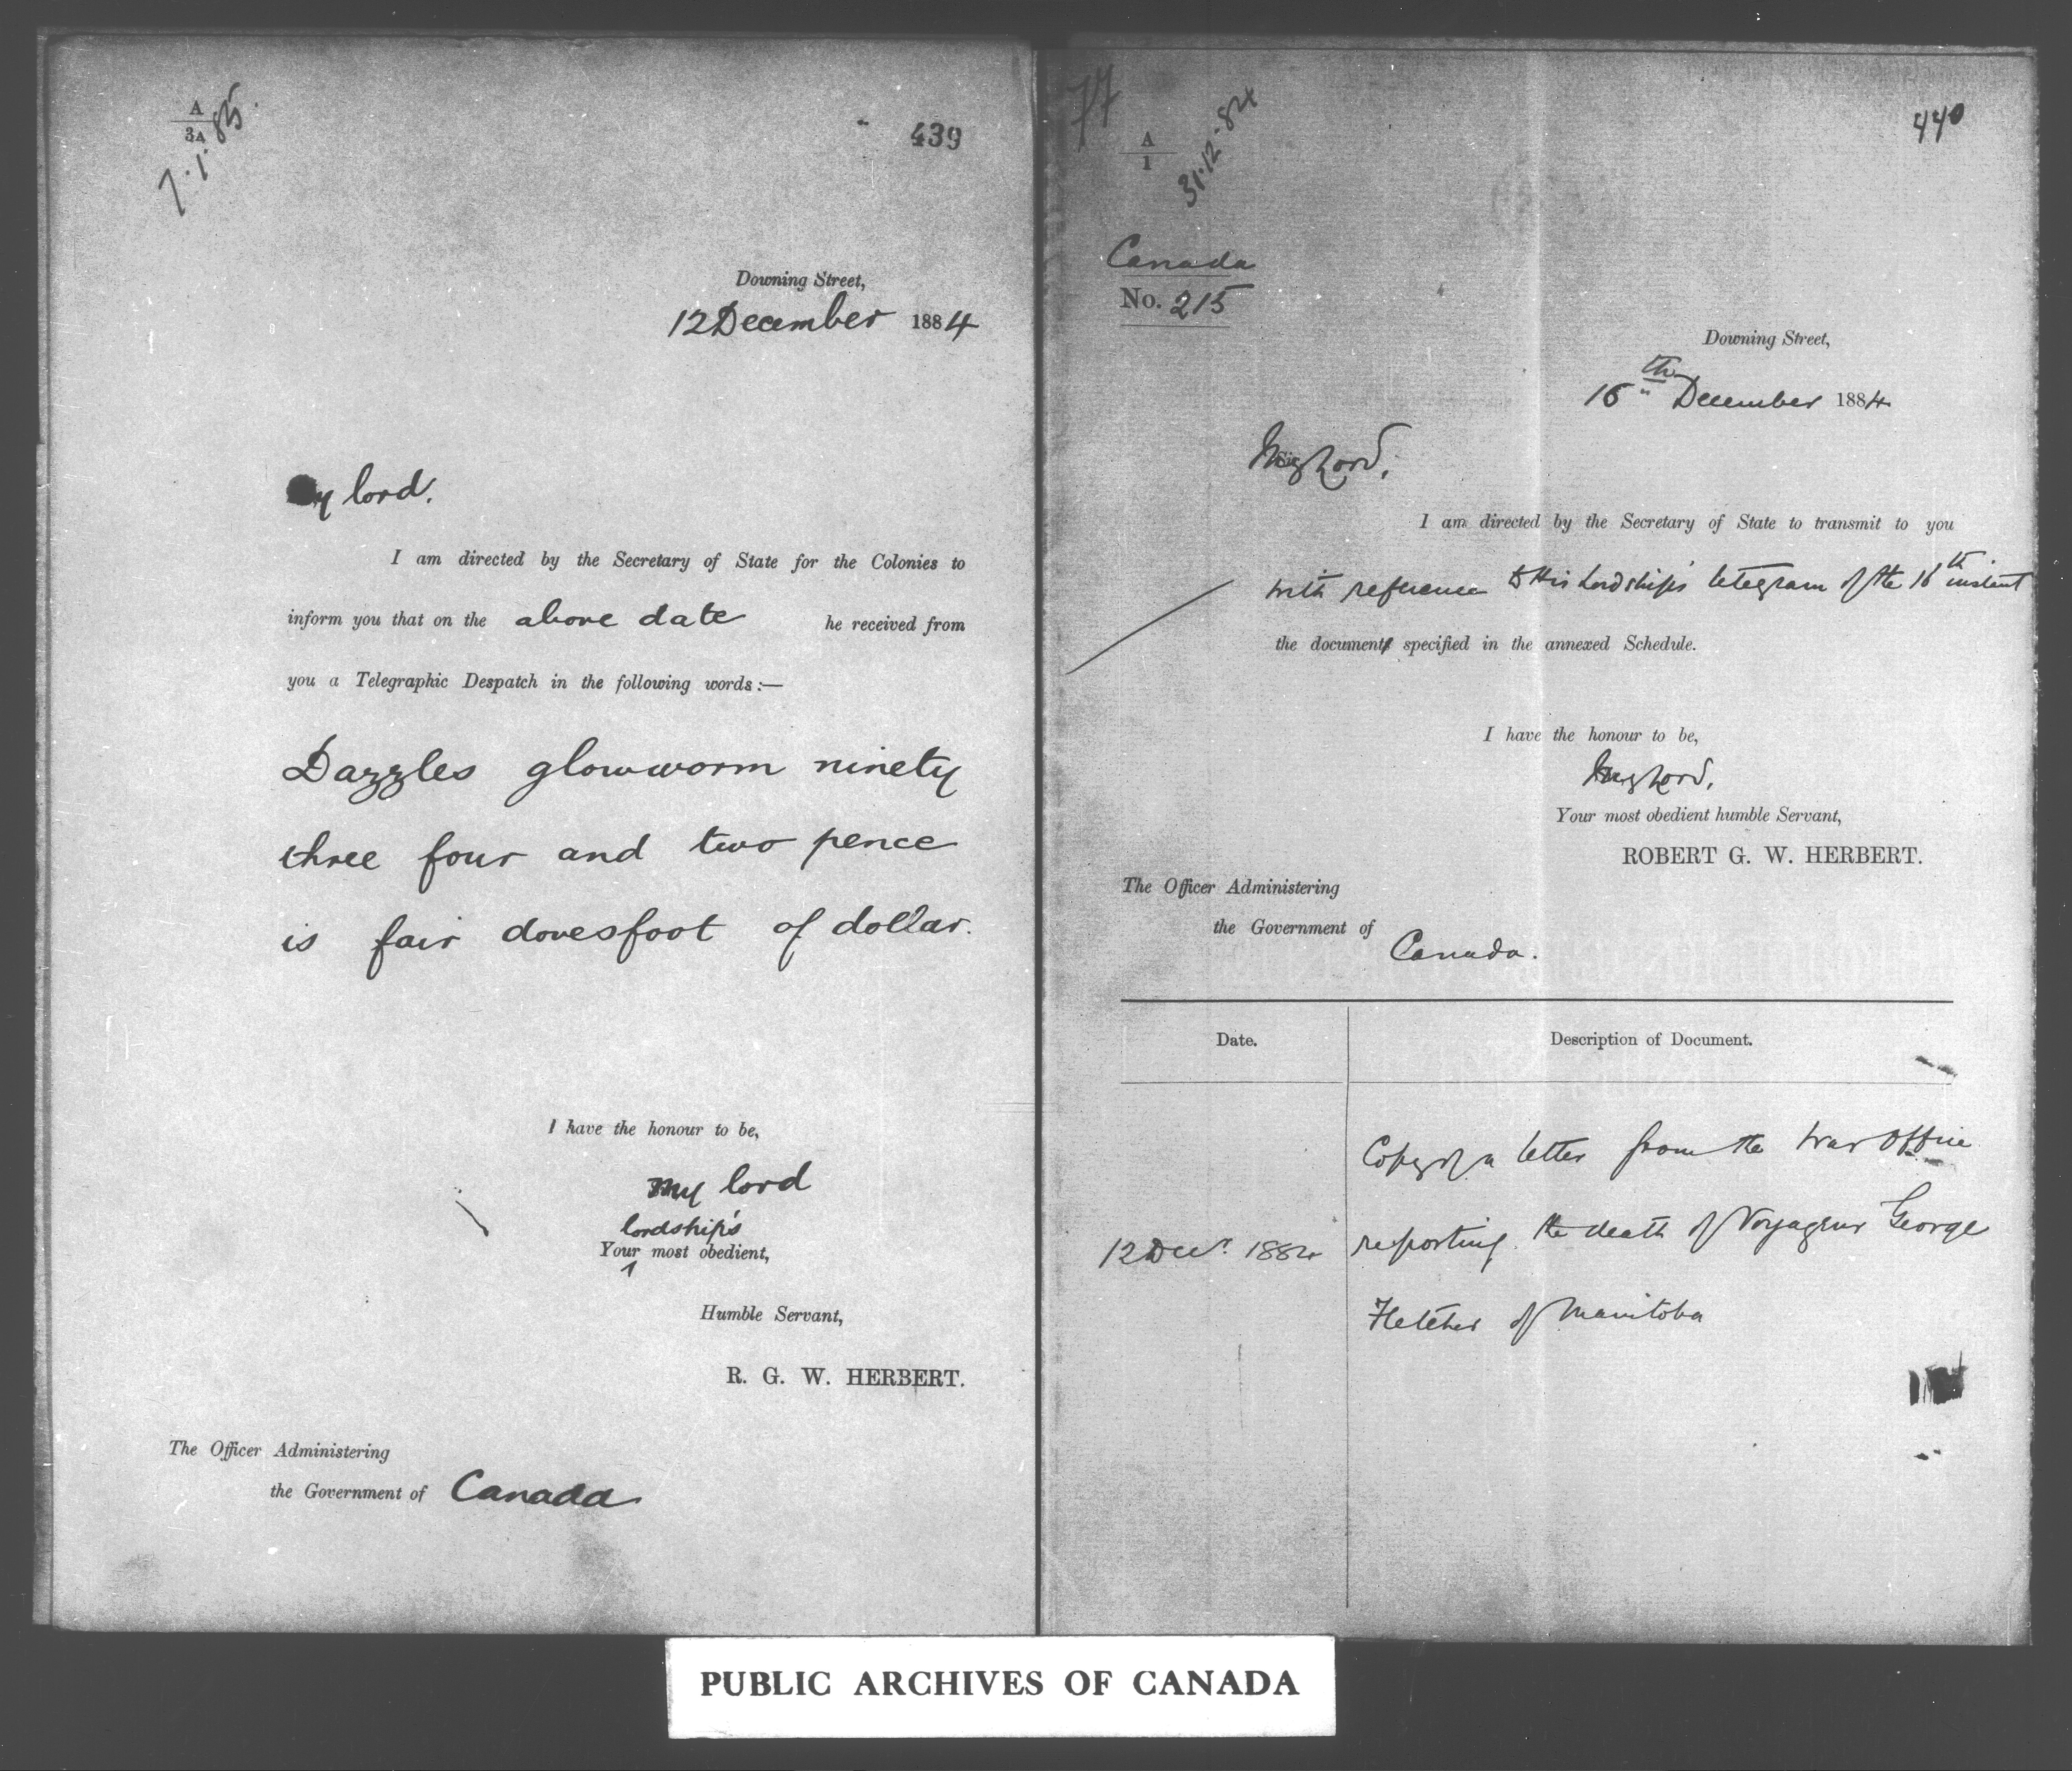 A
3A
7.1.85.
439
Downing Street,
12 December 1884
My lord.
I am directed by the Secretary of State for the Colonies to
inform you that on the above date he received from
you a Telegraphic Despatch in the following words:—
Dazzles glowworm ninety
three four and two pence
is fair dovesfoot of dollar.
I have the honour to be,
My lord
lordship's
Your most obedient,
Humble Servant,
R. G. W. HERBERT.
The Officer Administering
the Government of Canada
77
A
1
31.12.84
440
Canada
No. 215
Downing Street,
16th December 1884
My Lord,
I am directed by the Secretary of State to transmit to you
with reference to His Lordship's telegram of the 16th instant
the documents specified in the annexed Schedule.
I have the honour to be,
My Lord,
Your most obedient humble Servant,
ROBERT G. W. HERBERT.
The Officer Administering
the Government of
Canada.
Date.
Description of Document.
Copy of a letter from the War Office
12 Decr. 1884 reporting the death of Voyageur George
Fletcher of Manitoba
PUBLIC ARCHIVES OF CANADA